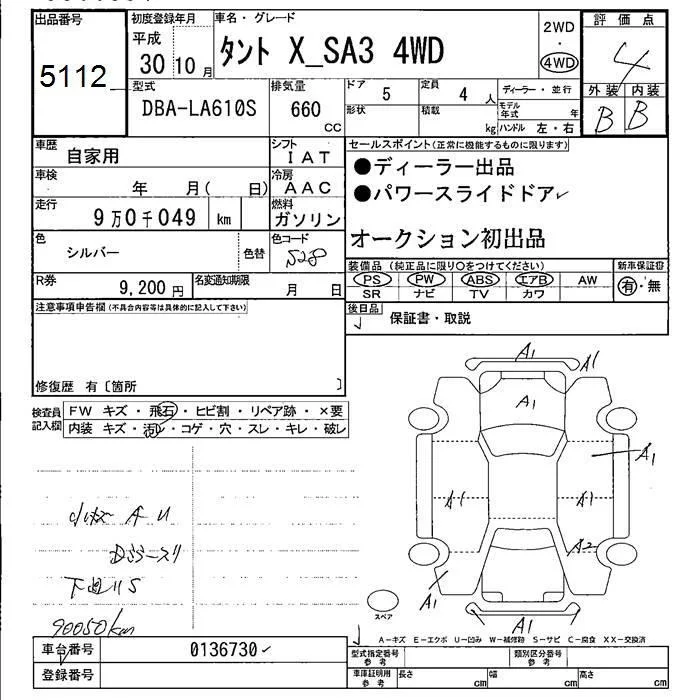 出品番号
5112
初度登録年月
平成
30 10月
車名・グレード
タント X_SA3 4WD
2WD
・
4WD
評価点
4
外装 内装
B B
型式
DBA-LA610S
排気量
660
CC
ドア
5
定員
4 人
形状
積載
kg
ディーラー・並行
モデル年式 年
ハンドル 左・右
車歴
自家用
シフト
IAT
車検
年 月( 日)
冷房
AAC
走行
9万0千049 km
燃料
ガソリン
色
シルバー
色替
色コード
S28
R券
9,200円
名変通知期限
月 日
セールスポイント(正常に機能するものに限ります)
●ディーラー出品
●パワースライドドア
オークション初出品
装備品(純正品に限り○をつけてください)
PS PW ABS エアB AW
SR ナビ TV カワ
新車保証書
有・無
後日品
保証書・取説
注意事項申告欄(不具合内容等は具体的に記入して下さい)
修復歴 有〔箇所 〕
検査員記入欄
FW キズ・飛石・ヒビ割・リペア跡・×要
内装 キズ・汚レ・コゲ・穴・スレ・キレ・破レ
A U
下回りS
90050km
A1
A1
A1
A1
A1
A1
A2
A1
A1
スペア
A-キズ E-エクボ U-凹み W-補修跡 S-サビ C-腐食 XX-交換済
車台番号
0136730
登録番号
型式指定番号
参考
類別区分番号
参考
車庫証明用
参考
長さ cm
幅 cm
高さ cm